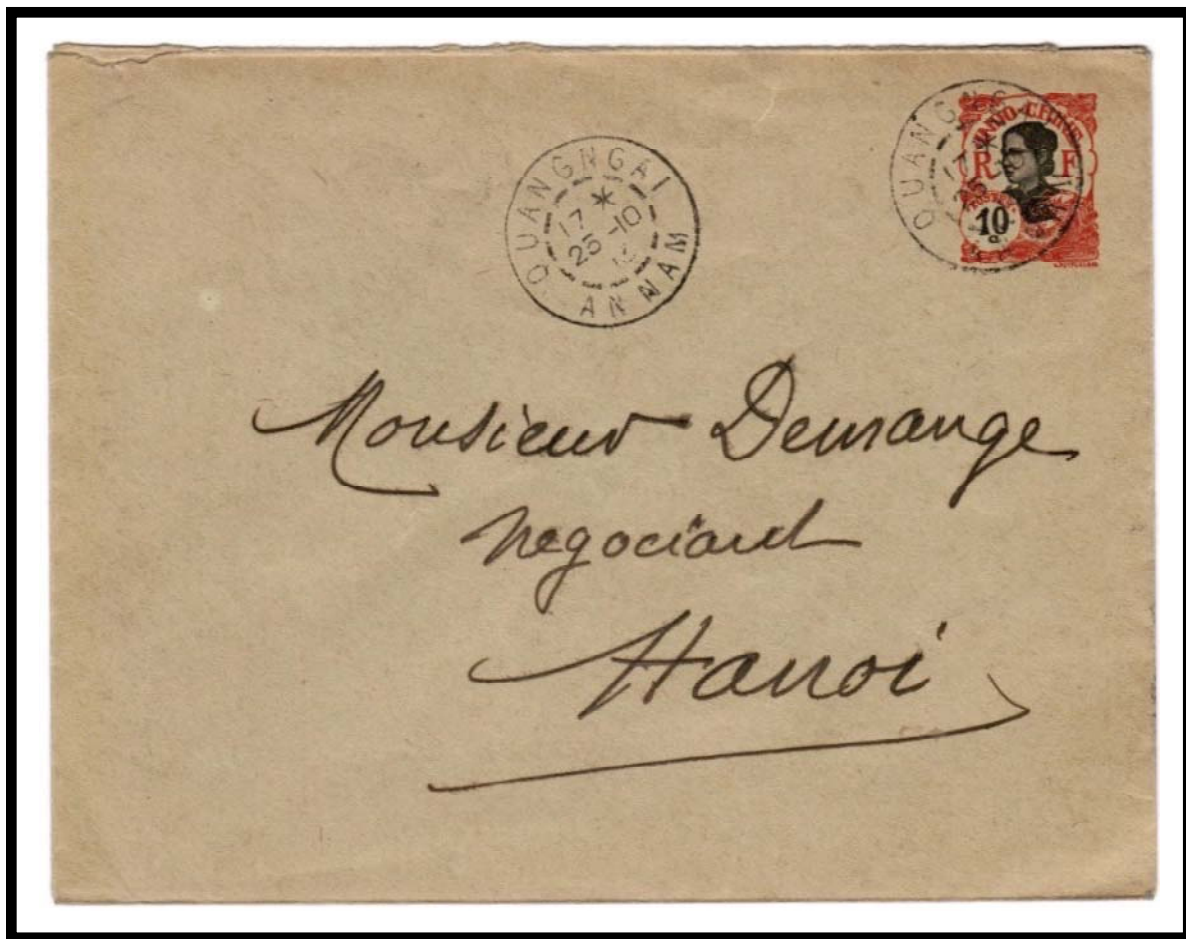 QUANGNGAI
17 *
25 -10
ANNAM
QUANGNG
INDO-CHINE
R F
10
Monsieur Demange
négociant
Hanoi